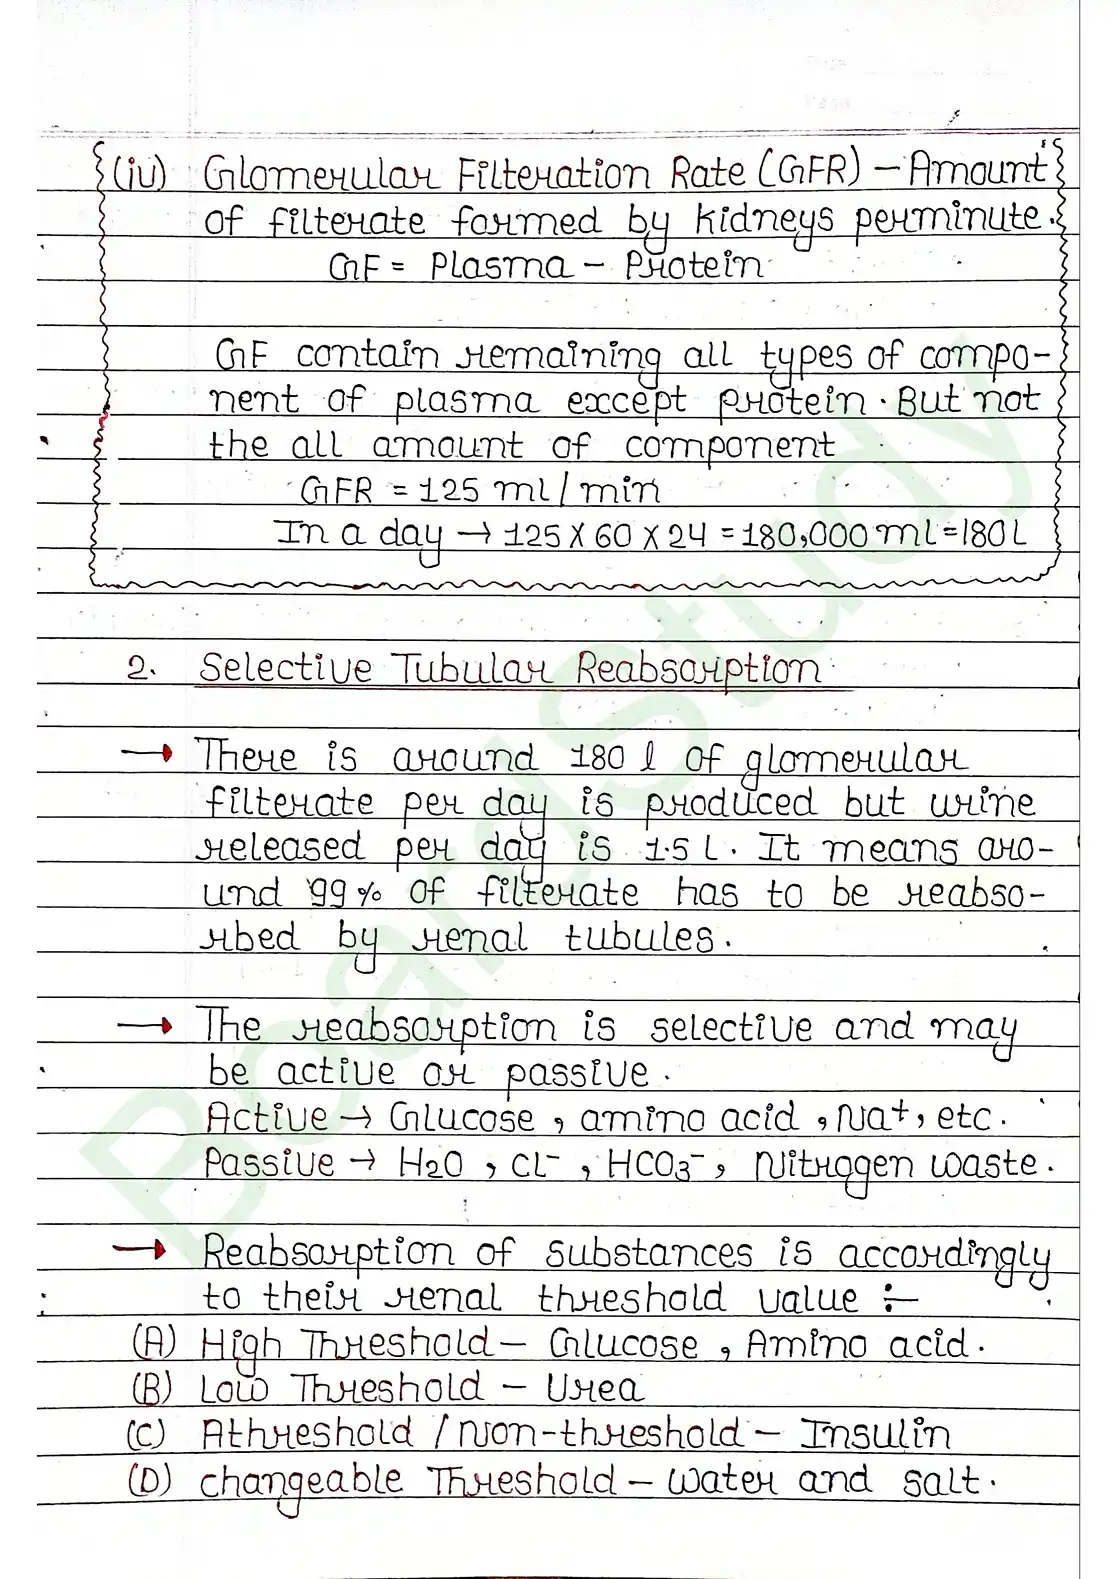 (iv) Glomerular Filteration Rate (GFR) – Amount
of filterate formed by kidneys perminute.
GF = Plasma – Protein
GF contain remaining all types of compo-
nent of plasma except protein. But not
the all amount of component
GFR = 125 ml / min
In a day → 125 X 60 X 24 = 180,000 ml = 180 L
2. Selective Tubular Reabsorption
→ There is around 180 l of glomerular
filterate per day is produced but urine
released per day is 1.5 L. It means aro-
und 99% of filterate has to be reabso-
rbed by renal tubules.
→ The reabsorption is selective and may
be active or passive.
Active → Glucose, amino acid, Na+, etc.
Passive → H2O, CL-, HCO3-, Nitrogen waste.
→ Reabsorption of substances is accordingly
to their renal threshold value :-
(A) High Threshold – Glucose, Amino acid.
(B) Low Threshold – Urea
(C) Athreshold / Non-threshold – Insulin
(D) changeable Threshold – water and salt.
BoardStudy